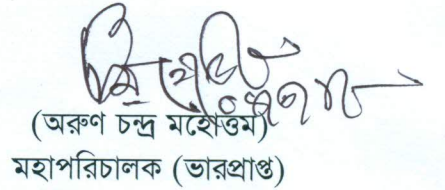 (অরুণ চন্দ্র মহোত্তম)
মহাপরিচালক (ভারপ্রাপ্ত)